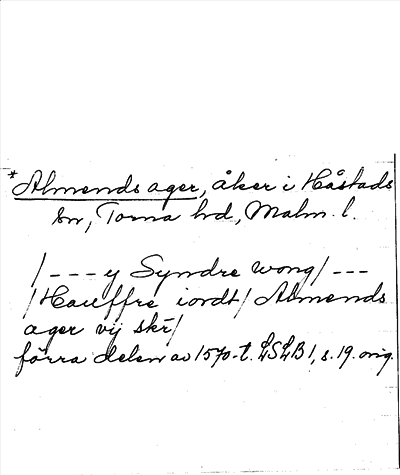 *Almends ager, åker i Håstads
sn, Torna hd, Malm. l.
/--- y Syndre wong/ ---
/Hauffre iordt/ Almends
ager vij skr̄/
förra delen av 1570-t. LSLB 1, s. 19. orig.